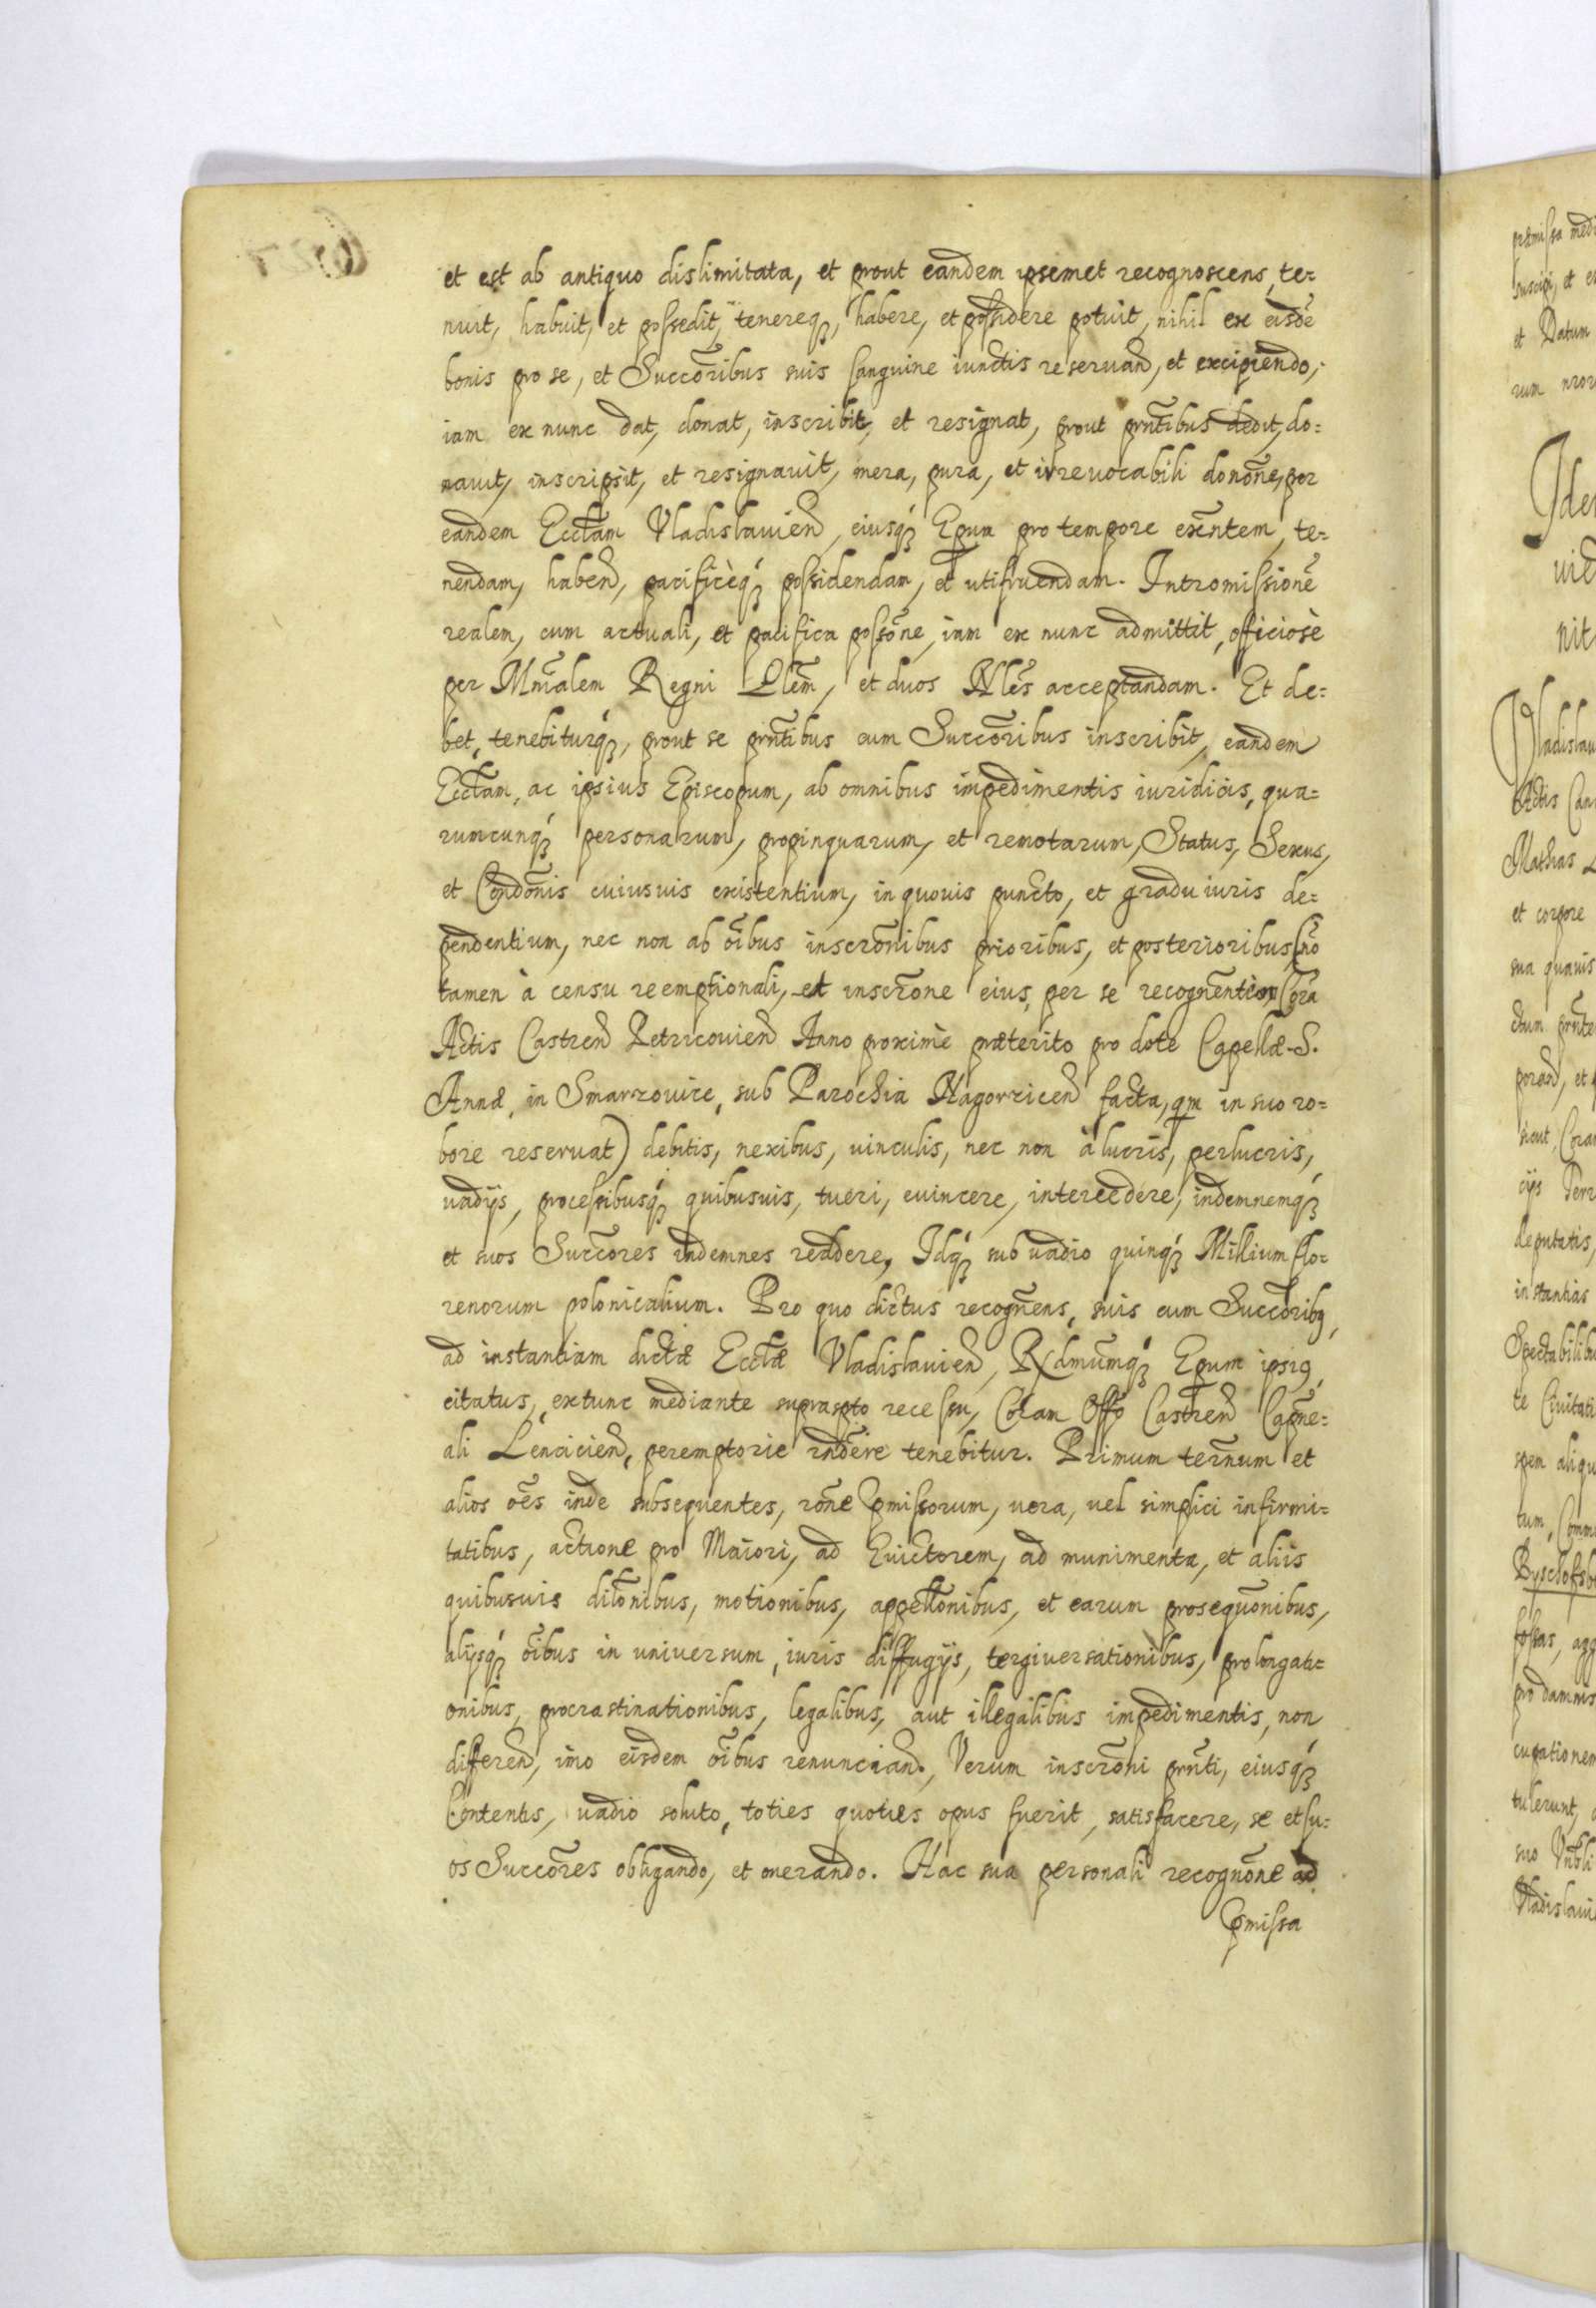 et est ab antiquo dislimitata, et prout eandem ipsemet recognoscens, te=
nuit, habuit, et possedit, tenereq3, habere, et possidere potuit, nihil ex eisdē
bonis pro se, et Succōribus suis sanguine iunctis reseruand, et excipiendo,
iam ex nunc dat, donat, inscribit, et resignat, prout prn̄tibus dedit, do=
nauit, inscripsit, et resignauit, mera, pura, et irreuocabili donōne, per
eandem Eccl̄am Vladislauien̄, eiusq3 Epum pro tempore exn̄tem, te=
nendam, haben̄d, pacificèq3 possidendam, et utifruendam. Intromissionē
realem, cum actuali, et pacifica possōne, iam ex nunc admittit, officiosè
per Mnr̄alem Regni Glēm, et duos Nlēs acceptandam. Et de=
bet, tenebiturq3, prout se prn̄tibus cum Succōribus inscribit, eandem
Eccl̄am, ac ipsius Episcopum, ab omnibus impedimentis iuridicis, qua=
rumcunq3 personarum, propinquarum, et remotarum, Status, Sexus,
et Condōnis cuiusuis existentium, in quouis puncto, et gradu iuris de=
pendentium, nec non ab oībus inscrōnibus prioribus, et posterioribus (nō
tamen à censu reemptionali, et inscrōne eius, per se recognēntem Corā
Actis Castren̄ Petricouien̄ Anno proximè præterito pro dote Capellæ S.
Annæ, in Smarzouice, sub Parochia Nagorzicen̄ facta, qm in suo ro=
bore reseruat) debitis, nexibus, uinculis, nec non à lucris, perlucris,
uadijs, processibusq3 quibusuis, tueri, euincere, intercedere, indemnemq3
et suos Succōres indemnes reddere, Idq3 sub uadio quinq3 Millium flo=
renorum polonicalium. Pro quo dictus recogn̄ens, suis cum Succōribꝯ,
ad instantiam dictæ Eccl̄æ Vladislauien̄, Rdmūmq3 Epum ipsiꝯ,
citatus, extunc mediante suprascpto recessu, Coram Offō Castren̄ Capn̄e=
ali Lencicien̄, peremptorie rn̄dēre tenebitur. Primum ter̄num et
alios oēs inde subsequentes, rōne p̄missorum, uera, uel simplici infirmi=
tatibus, actione pro Maiori, ad Euictorem, ad munimenta, et aliis
quibusuis dilōnibus, motionibus, appellōnibus, et earum prosequōnibus,
alijsq3 oībus in uniuersum, iuris diffugijs, tergiuersationibus, prolongati=
onibus, procrastinationibus, legalibus, aut illegalibus impedimentis, non
differen̄d, imo eisdem oībus renuncian̄d, Verum inscrōni prn̄ti, eiusq3
Contentis, uadio soluto, toties quoties opus fuerit, satisfacere, se et su=
os Succōres obligando, et onerando. Hac sua personali recognōne ad
p̄missa